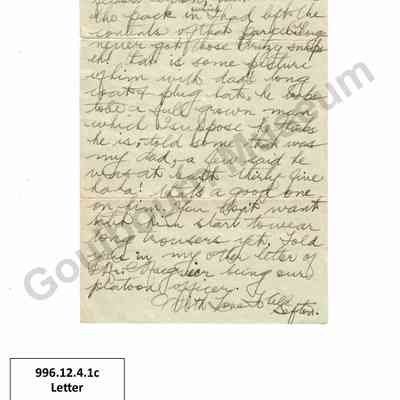 the pack in
contents of that
never got those
eh! that is some picture
of him with dads long
coat & plug hat, he looks
to be a full grown man
which I suppose he thinks
he is, told some that was
my dad, a few said he
was at least thirty five
haha! that's a good one
on him. You don't want
him start to wear
long trousers yet, Told
you in my other letter of
Mr. being our
platoon officer.
With Love to All
Sefton.
Goulbourn Museum
996.12.4.1c
Letter